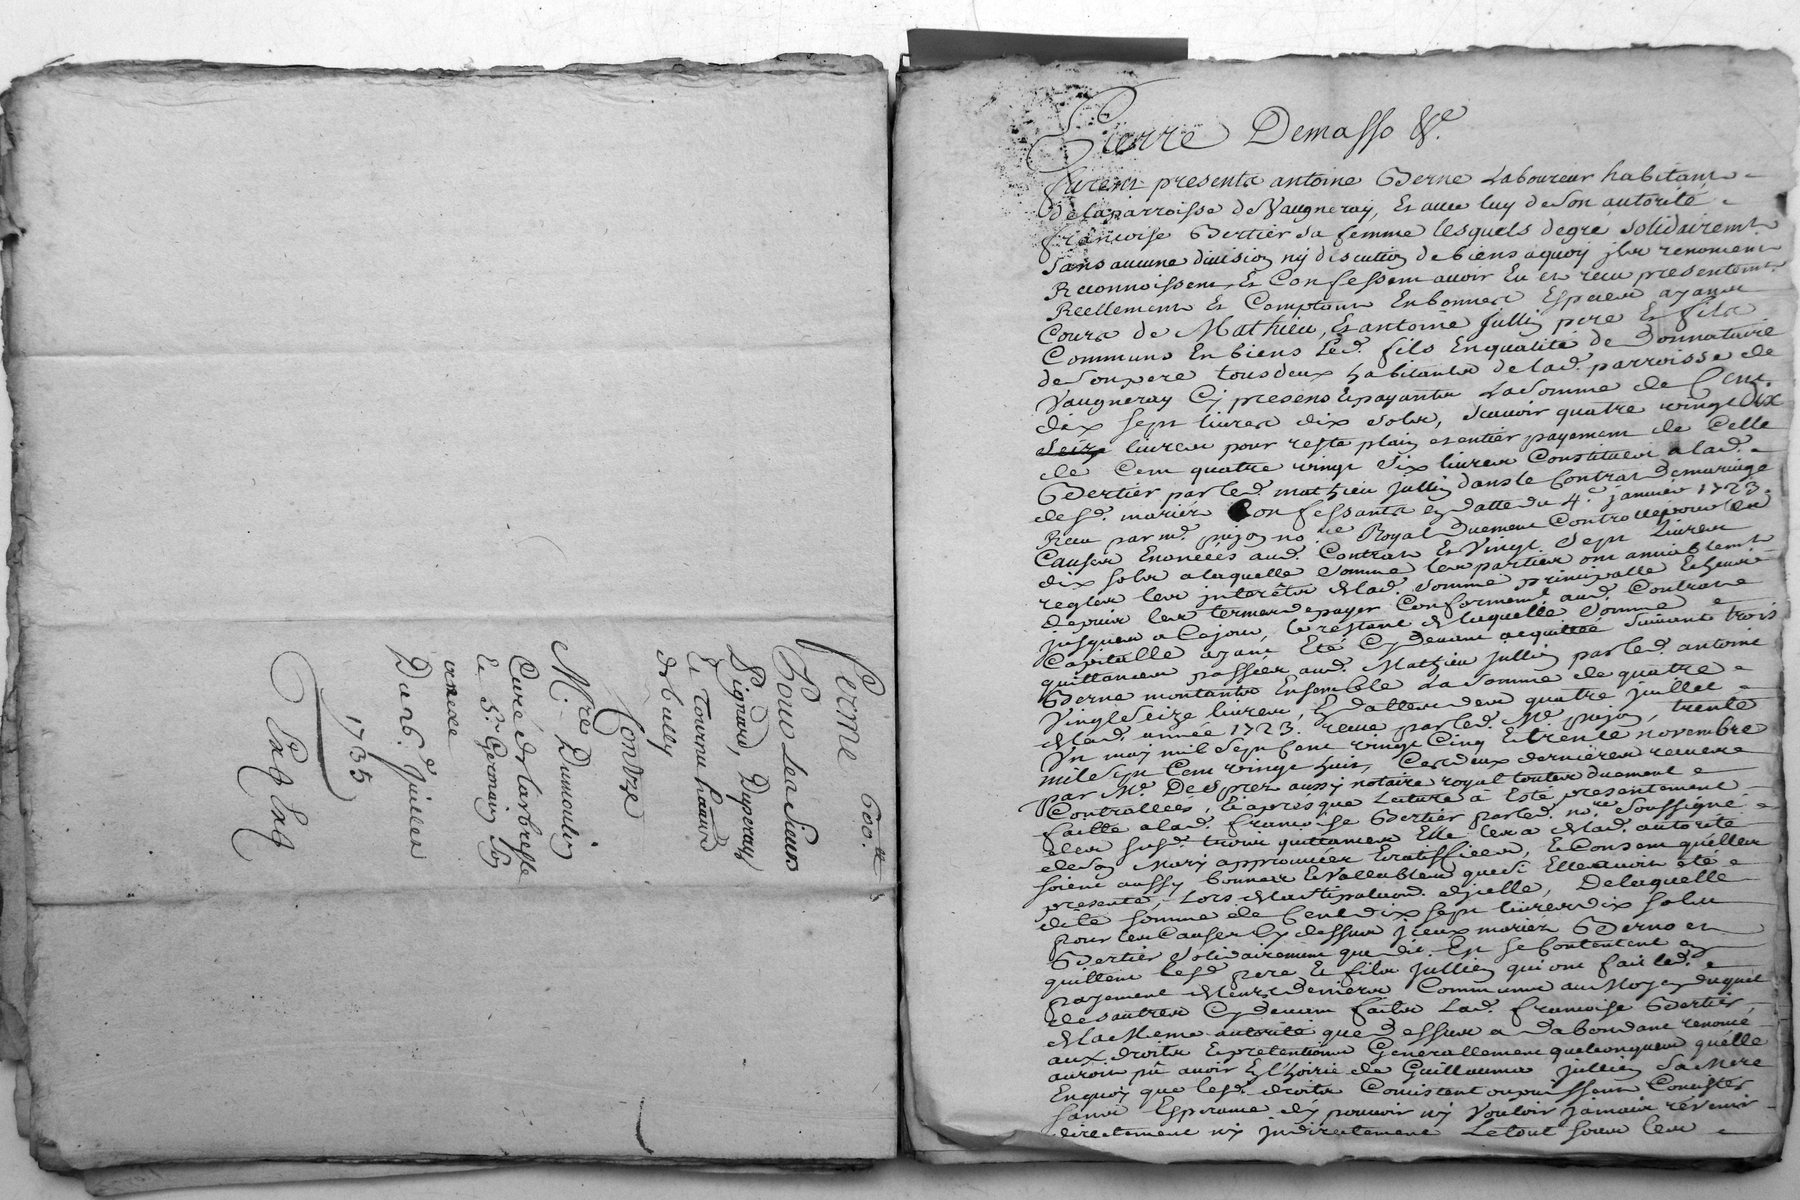 Ferme 600.tt
Pour Les Sieurs
Pignard, Duperay
Et Tourna haaur
de bully
Contre
Mre. Dumoulin
Curé de larbresle
Et Sr. Germain Roy
annexe
Du 26e. Juillet
1735
Pierre Demasso &e.
furent presents antoine Berne Laboureur habitant
de la parroisse de Vaugneray, Et avec luy de son autorité
françoise Bertier sa femme lesquels de gré solidairemt
sans aucune division ny discution de biens a quoy ils renoncent
Reconnoissent Et Confessent avoir Eu et recu presentemt
Reellement Et Comptant En bonnes Especes ayant
Cours de Mathieu, Et antoine Jullien pere Et fils
Communs En biens Led. fils En qualité de Donnataire
de son pere tous deux habitants de lad. parroisse de
Vaugneray Cy presens Et payants La Somme de Cent
dix sept livres dix sols, scavoir quatre vingt Dix
livres pour reste plain et entier payement de Celle
de Cent quatre vingt six livres Constituée a lad.
Bertier par led. mathieu Jullien dans le Contrat de mariage
desd. mariés Confessants en datte du 4e. janvier 1723.
Receu par me. pujon nore Royal Duement Controllé pour les
Causes Enoncées aud. Contrat Et Vingt Sept Livres
dix sols a laquelle Somme les parties ont amiablemt
reglés les interêts de lad. Somme principalle Echeus
depuis les termes de payer Conformemt. aud. Contrat
jusques a Cejour, le restant de laquelle Somme
Capitalle ayant Eté Cy devant acquittée suivant trois
quittances passées aud. Mathieu Jullien par led. antoine
Berne montants Ensemble La Somme de quatre
Vingt Seize livres, En dattes des quatre juillet
de lad. année 1723. receue par led. Me. pujon, trente
Un may mil sept Cent vingt Cinq Et trente novembre
mil sept Cent vingt huit, Ces deux dernieres receues
par Me. Desprez aussy notaire royal toutes duement
Controllées, Et après que Lecture a Esté presentement
faitte a lad. françoise Bertier par led. nore. Soussigné
des susd. trois quittances Elle les a de lad. autorité
de son Mary approuvées Et ratiffiées, Et Consent qu'elles
soient aussy bonnes Et Vallables que si Elle avoit été
presente, Lors de la stipulaon. d'icelle, De laquelle
dite somme de Cent dix sept livres dix sols
pour les Causes Cy dessus iceux mariés Berne et
Bertier solidairement que dit Est se Contentent et
quittent lesd. pere Et fils Jullien qui ont fait led.
payement de leurs deniers Communs au Moyen duquel
des autres Cy devant faits Lad. françoise Bertier
de la Meme autorité que dessus a d'abondant renoncé
aux droits Et pretentions Generallement quelconques qu'elle
auroit pû avoir En l'hoirie de Guillaume Jullien Sa Mere
En quoy que lesd. droits Consistent ou puissent Consister
sans Esperance d'y pouvoir ny Vouloir jamais revenir
directement ny indirectement Le tout sous les